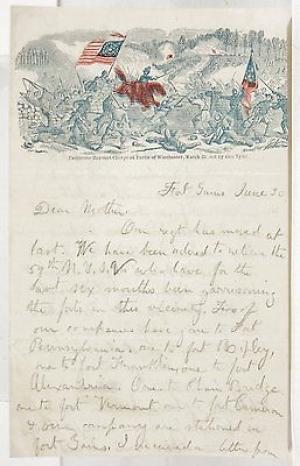 Desperate Bayonet Charge at Battle of Winchester, March 23, led by Gen. Tyler.
Fort Gains June 30
Dear Mother.
Our regt has moved at
last. We have been ordered to relieve the
59th N.Y.S.V. who have for the
last six months been garrisoning
the forts in this vicinity. Two of
our companies have gone to Fort
Pennsylvania, one to fort Ripley,
one to fort Franklin, one to fort
Alexandria. One to Chain Bridge
one to fort Vermont one to fort Cameron
& our company are stationed in
fort Gains. I received a letter from